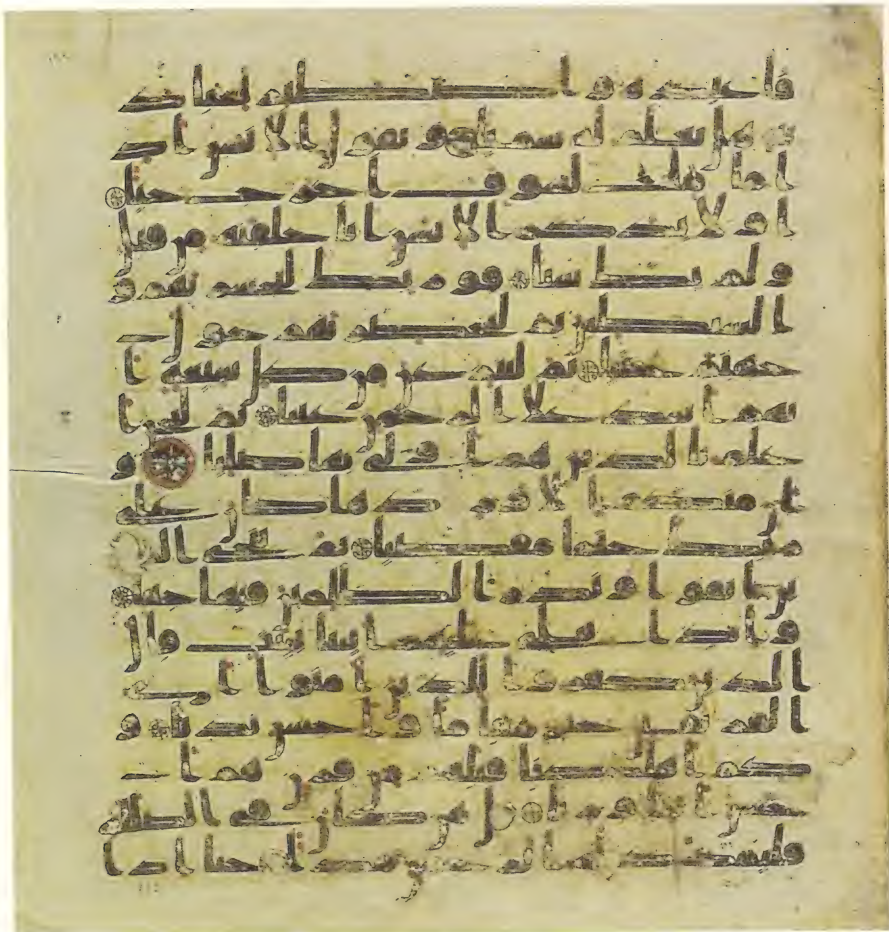 فاعبده واصطبر لعباد
ته هل تعلم له سميا ويقول الانسن اذ
ا ما مت لسوف اخرج حيا
اولا يذكر الانسن انا خلقنه من قبل
ولم يك شيا فوربك لنحشرنهم و
الشيطين ثم لنحضرنهم حول
جهنم جثيا ثم لننزعن من كل شيعة ا
يهم اشد على الرحمن عتيا ثم لنحن ا
علم بالذين هم اولى بها صليا و
ان منكم الا واردها كان على
ربك حتما مقضيا ثم ننجي الذ
ين اتقوا ونذر الظلمين فيها جثيا
واذا تتلى عليهم ايتنا بينت قال
الذين كفروا للذين امنوا اي
الفريقين خير مقاما واحسن نديا و
كم اهلكنا قبلهم من قرن هم ا
حسن اثثا وريا قل من كان في الضللة
فليمدد له الرحمن مدا حتى اذا